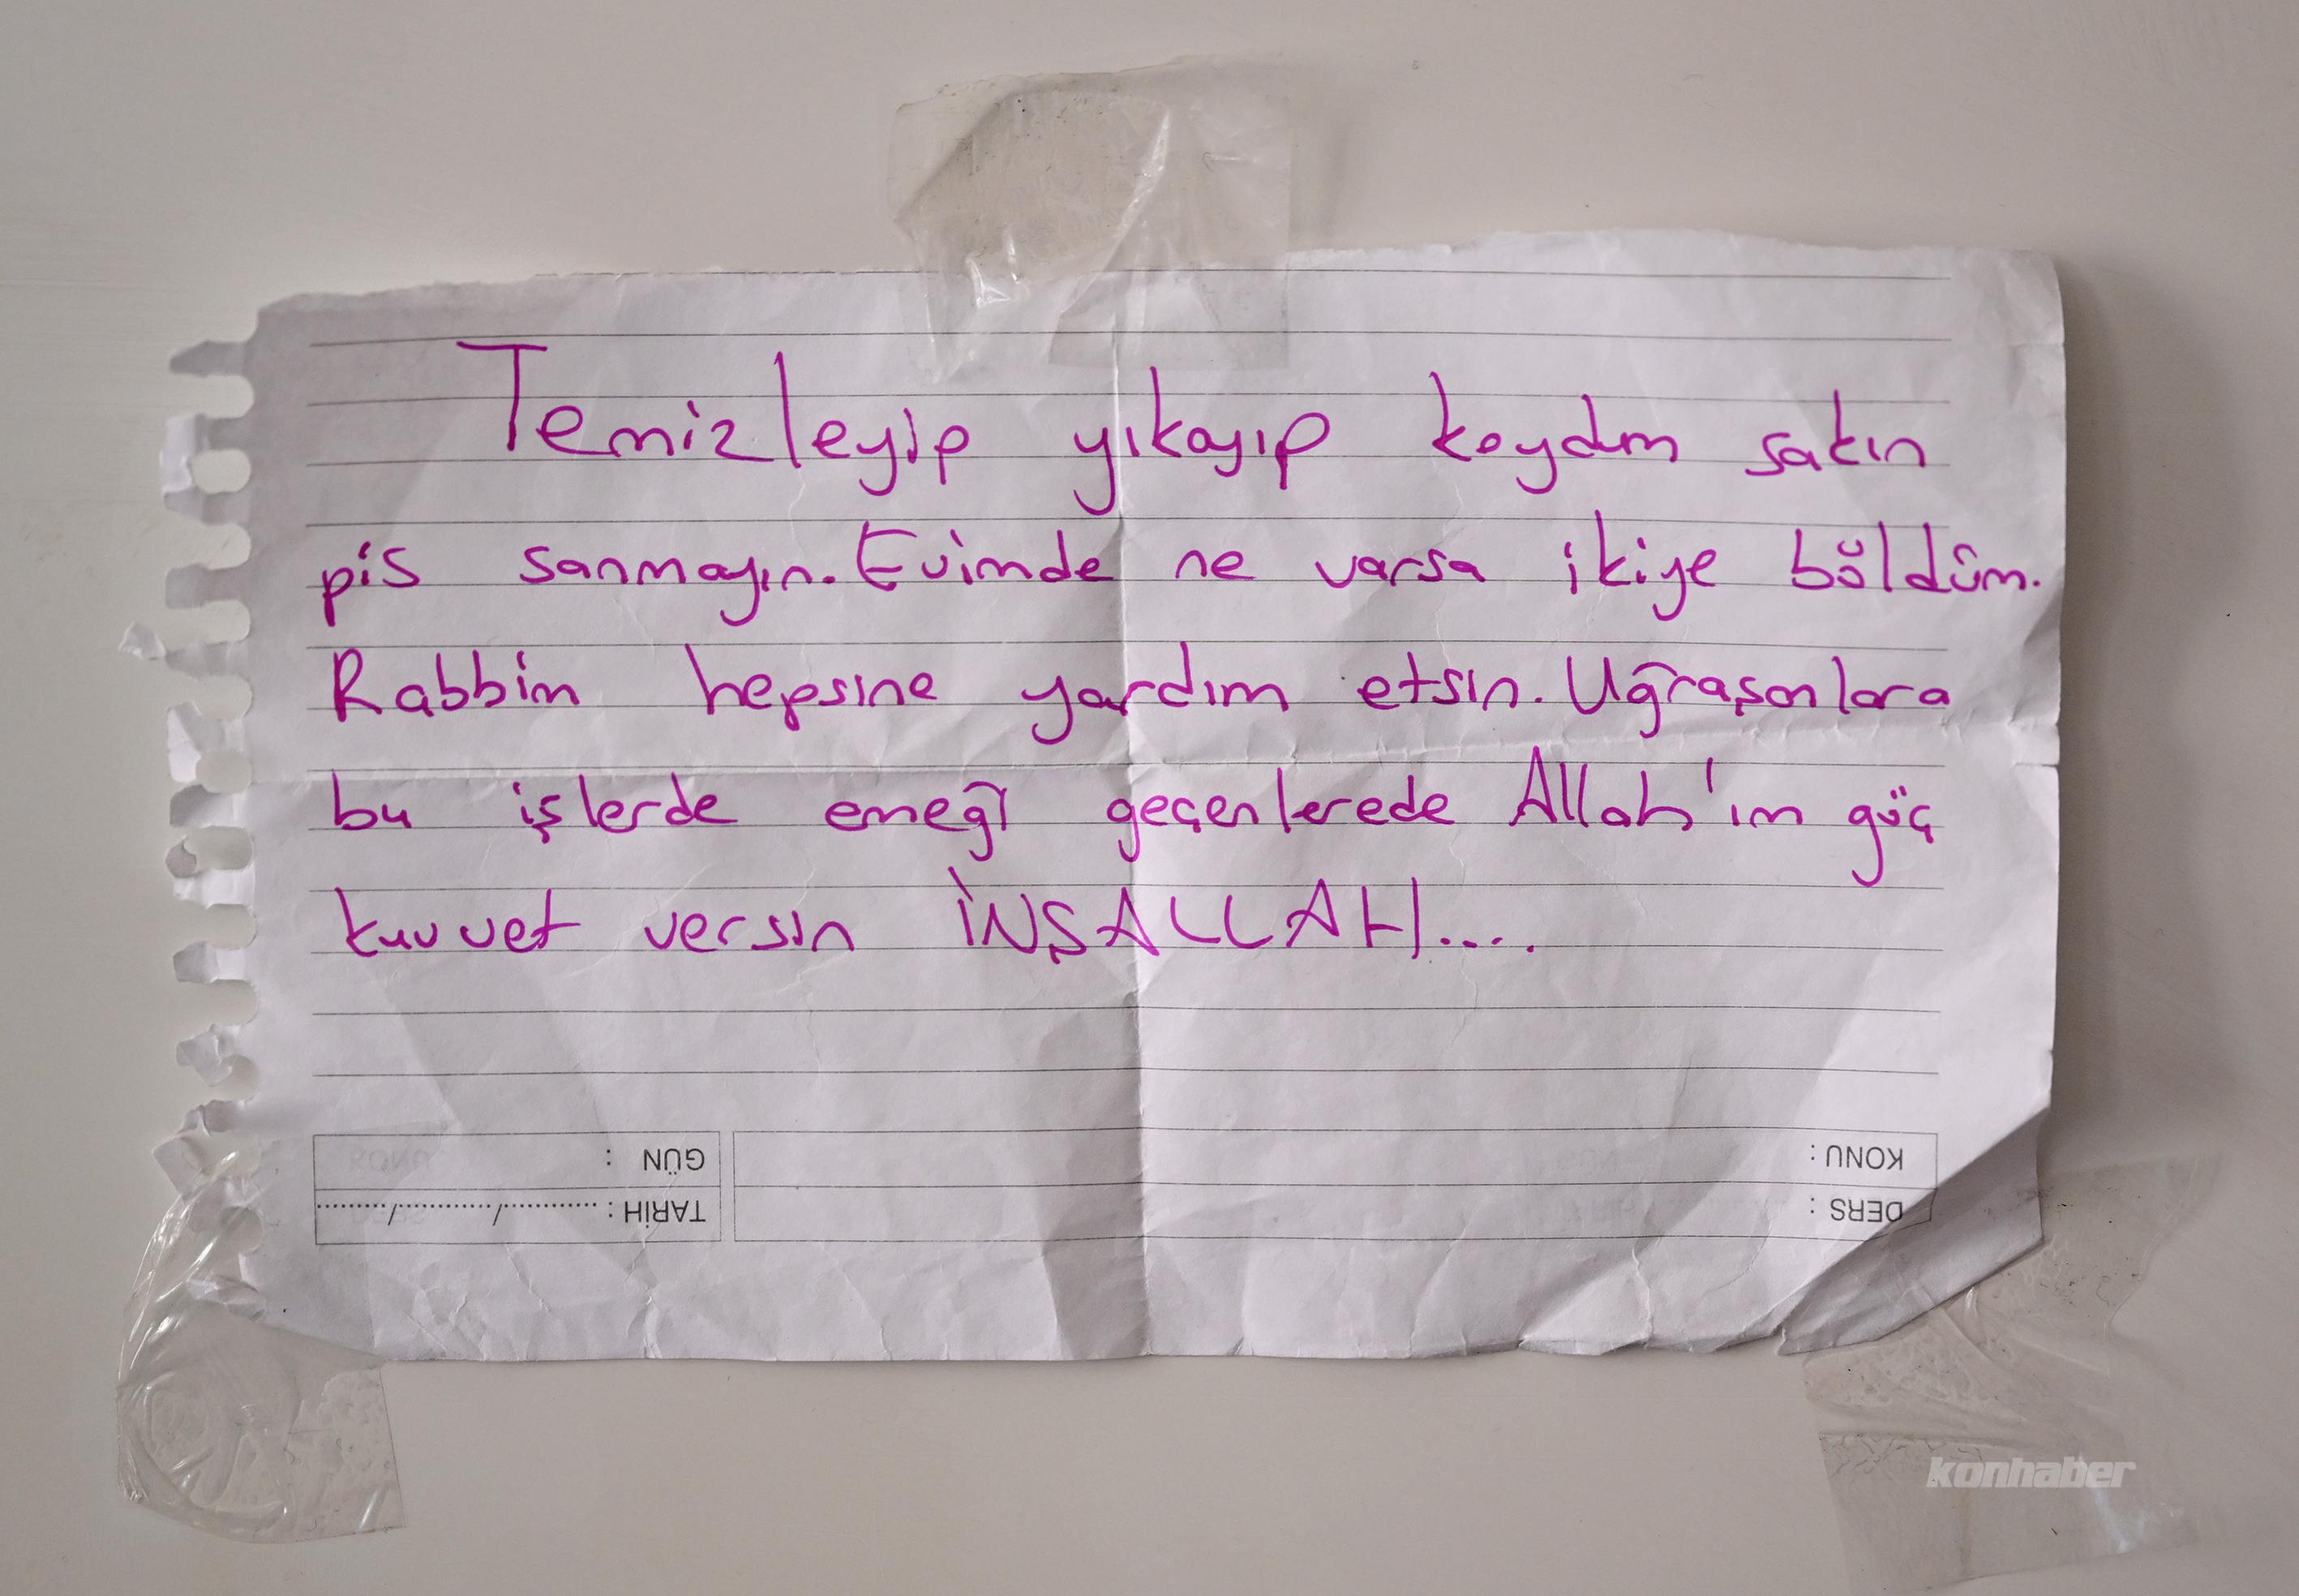 Temizleyip yıkayıp koydum sakın
pis sanmayın. Evimde ne varsa ikiye böldüm.
Rabbim hepsine yardım etsin. Uğraşanlara
bu işlerde emeği geçenlerede Allah'ım güç
kuvvet versin İNŞALLAH....
KONU :
DERS :
GÜN :
TARİH : ............/............/.........
konhaber